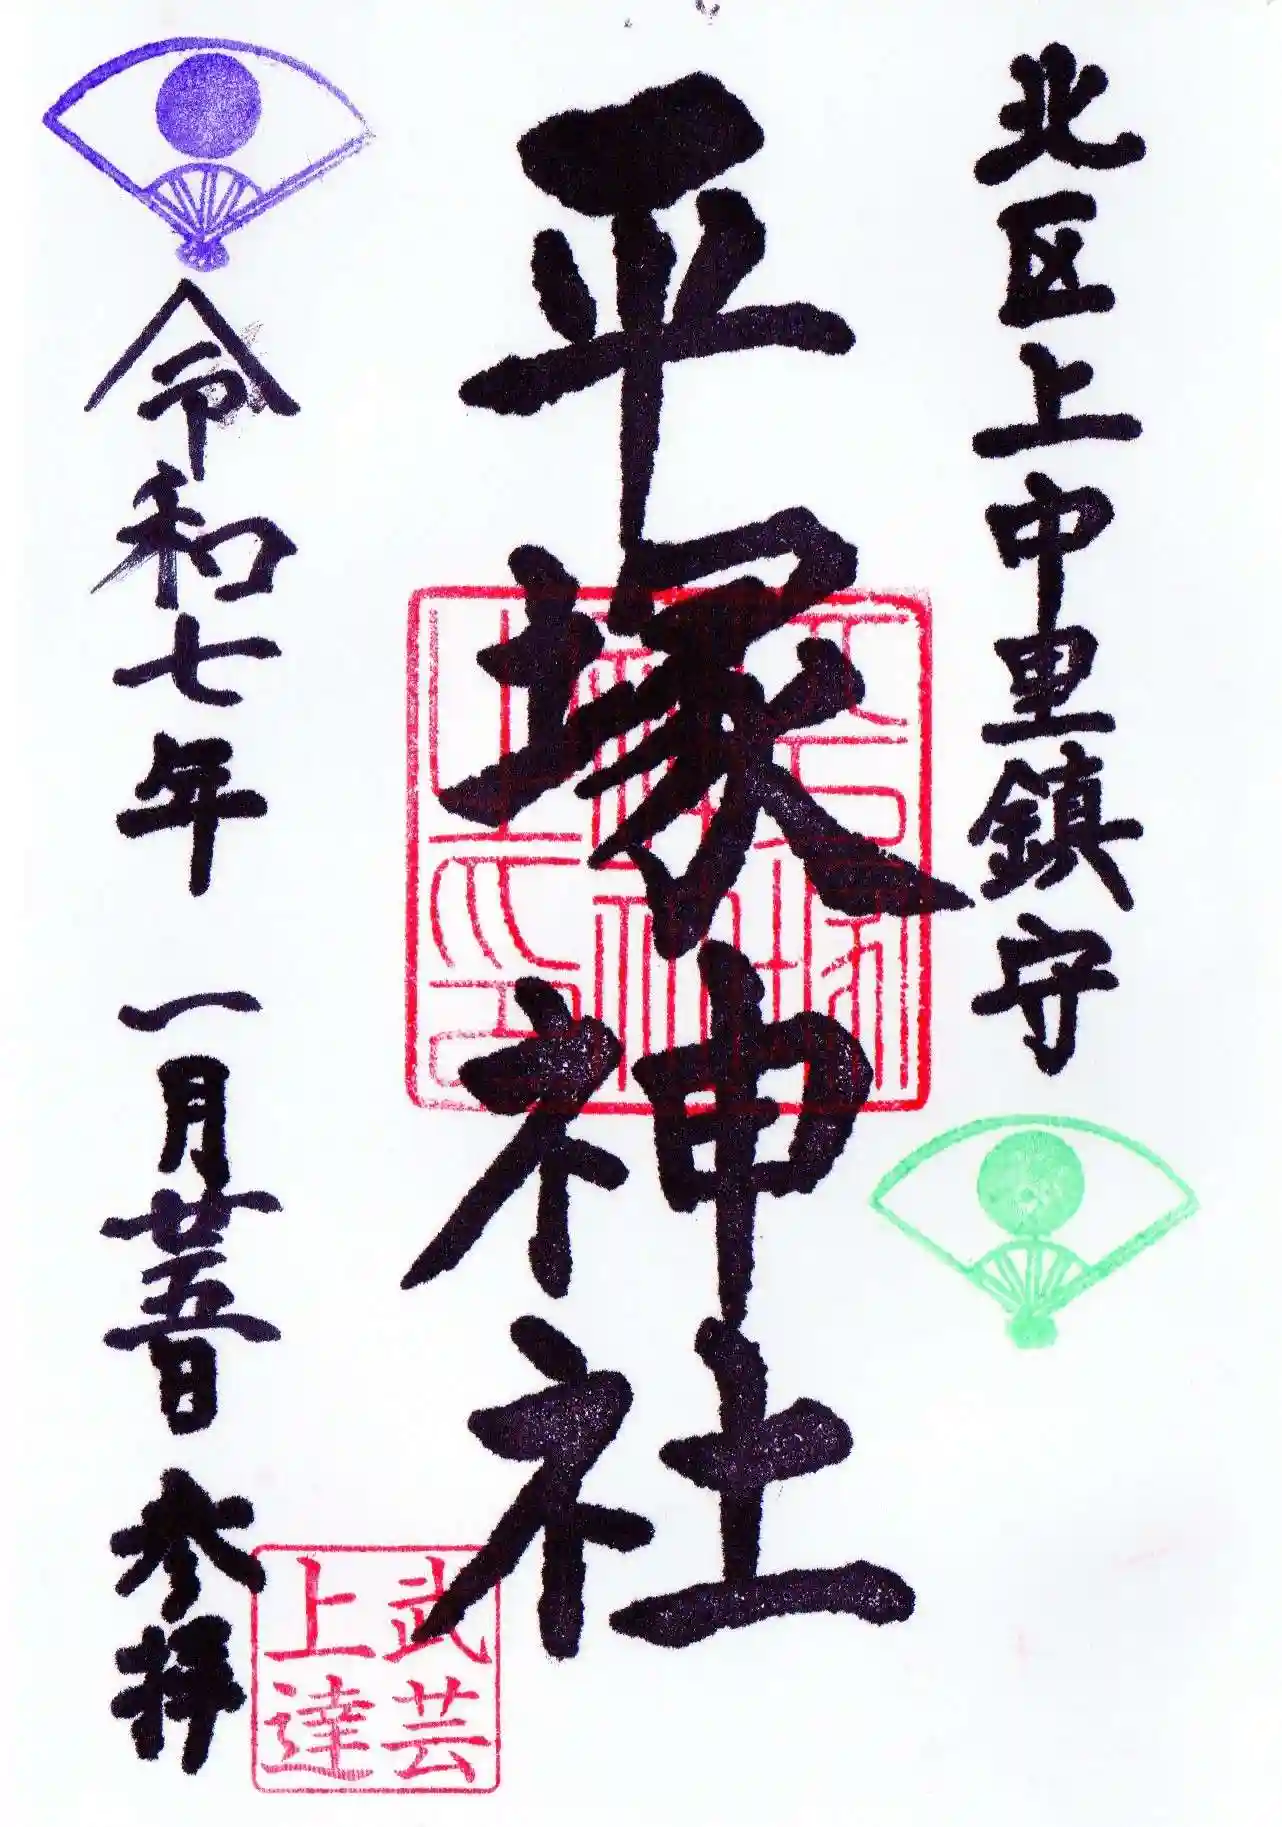 北区上中里鎮守
平塚神社
平塚神社之印
令和七年 一月廿五日 参拝
武芸
上達